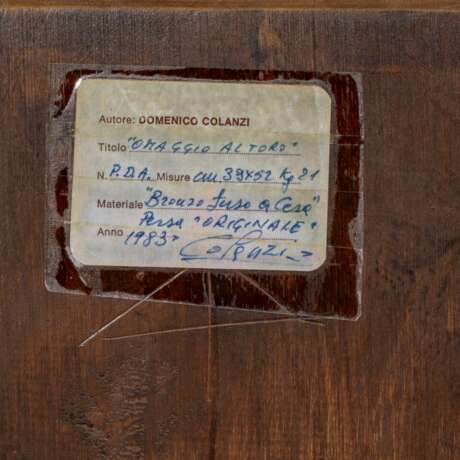 Autore: DOMENICO COLANZI
Titolo "OMAGGIO AL TORO"
N. P.D.A. Misure cm 39x52 Kg 21
Materiale "Bronzo fuso a Cera"
Persa "ORIGINALE"
Anno 1983
Colanzi